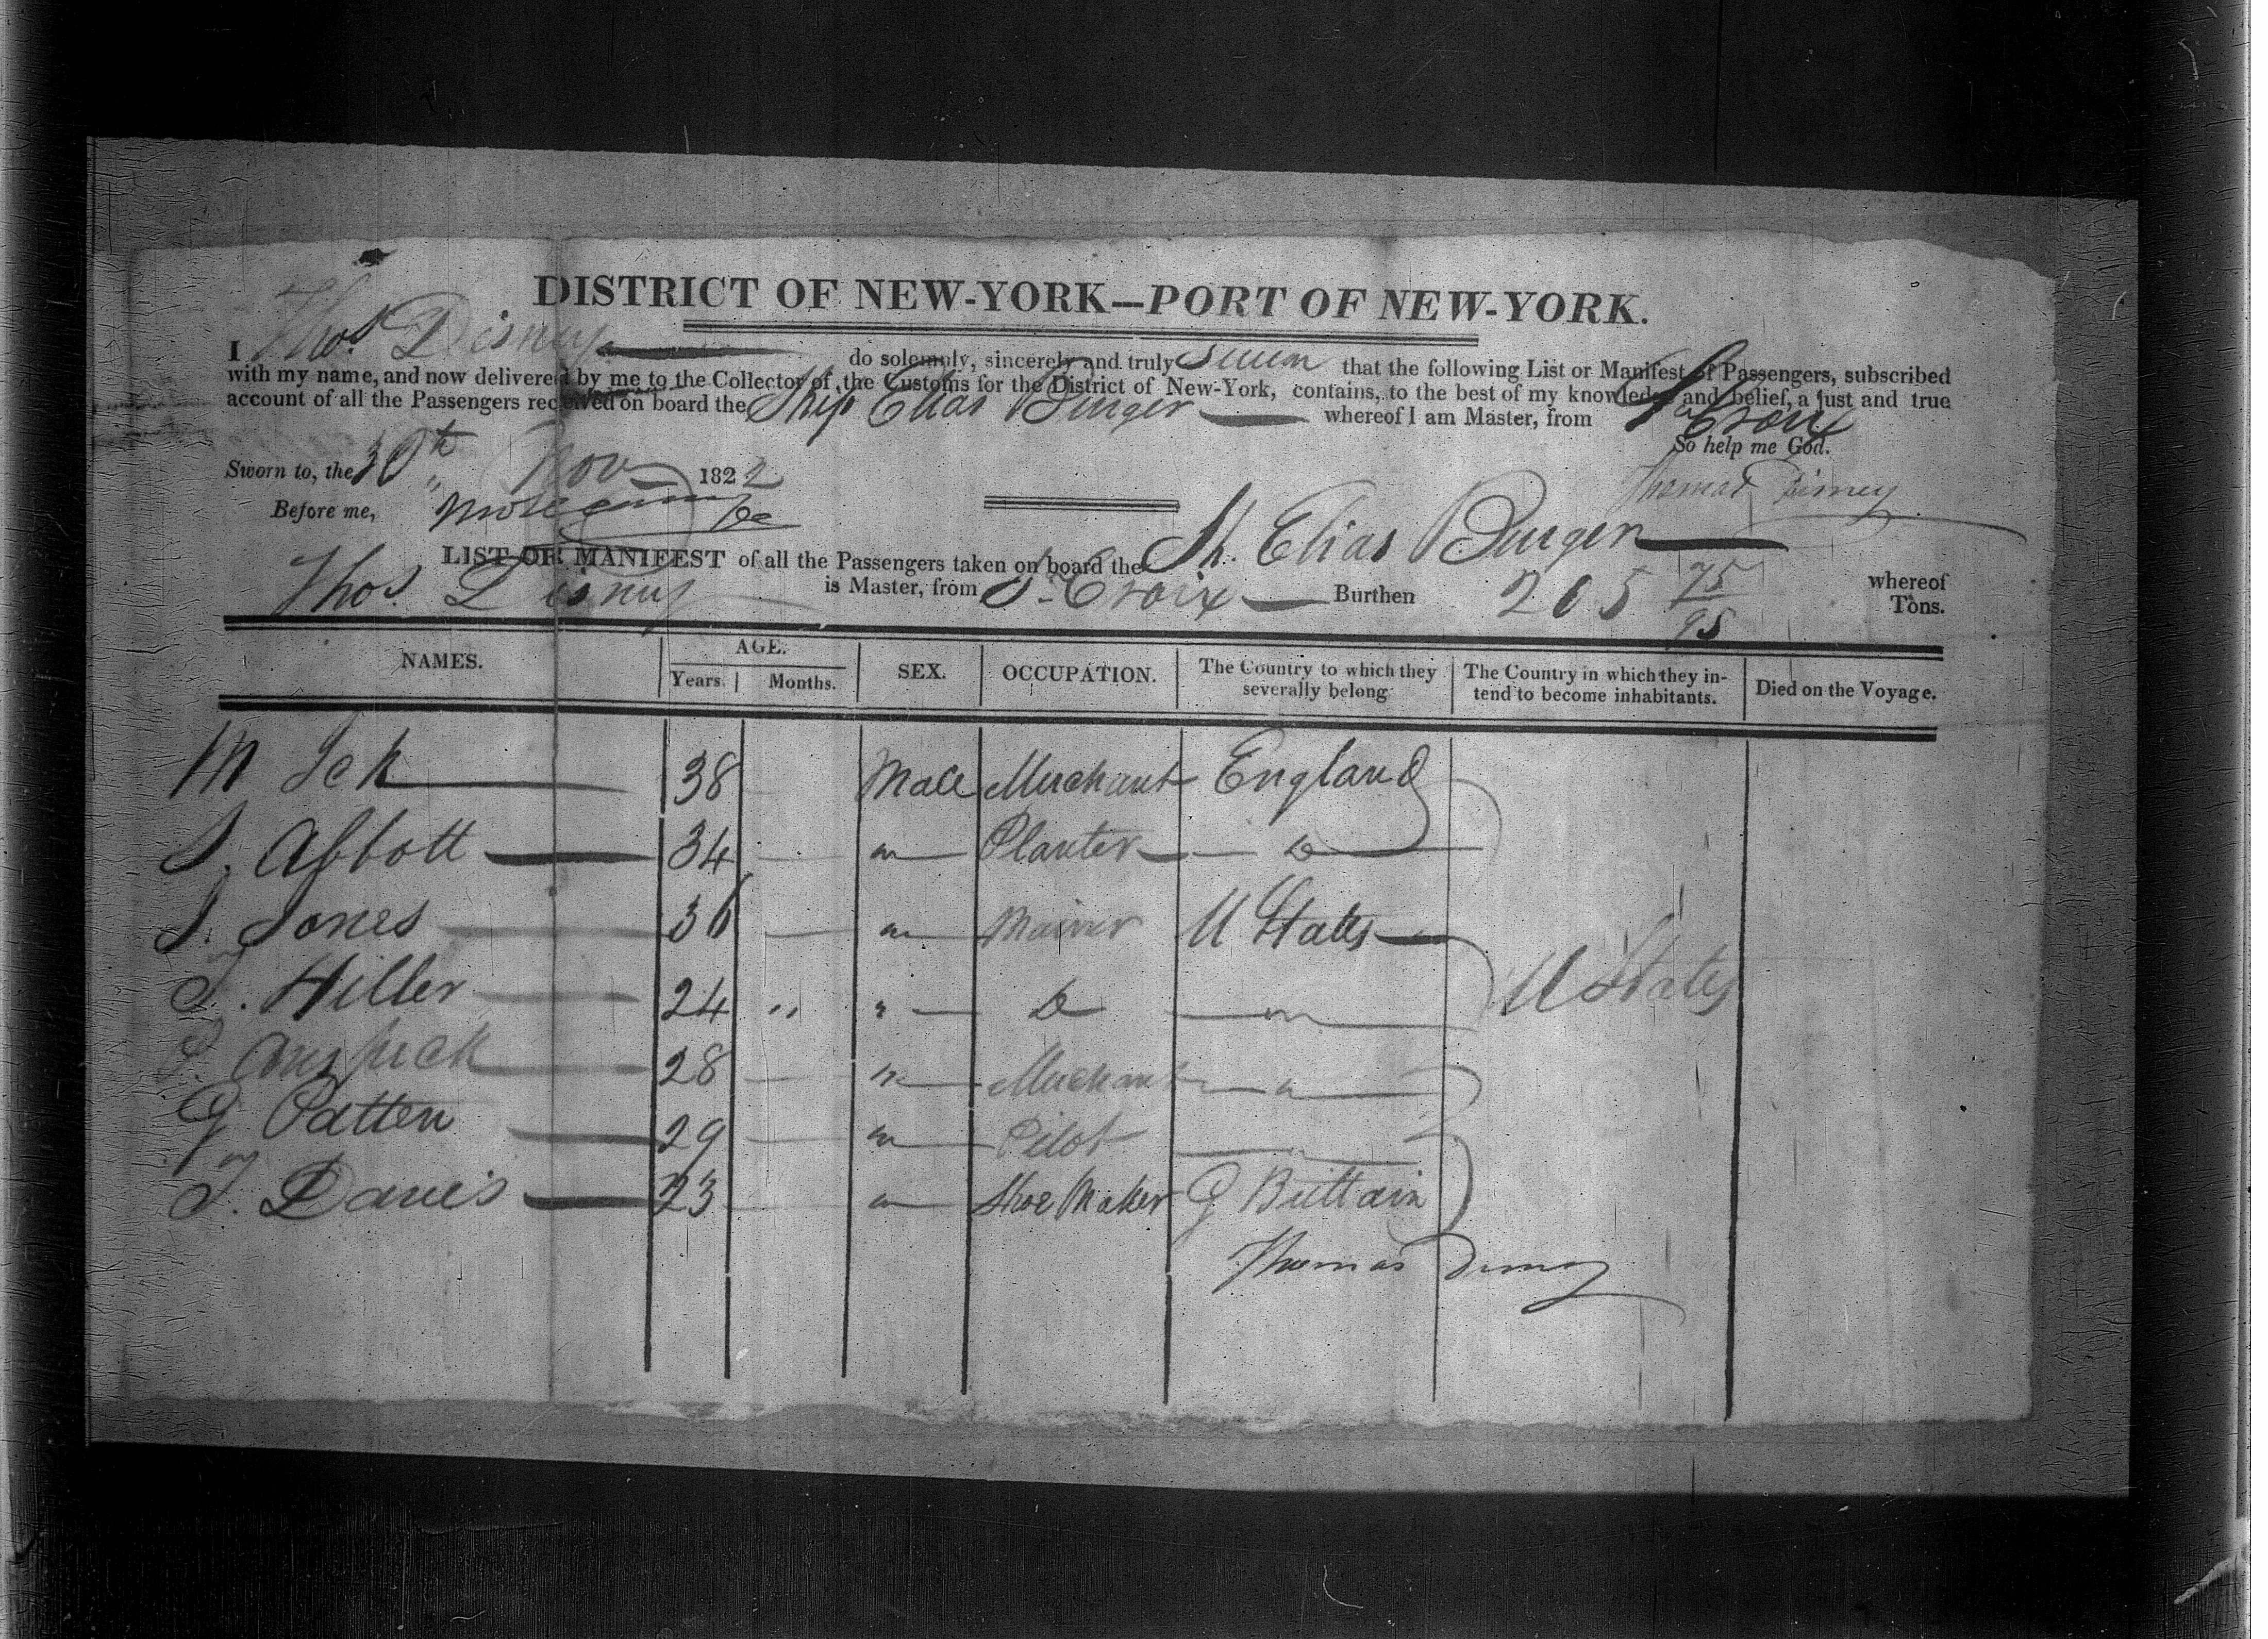 DISTRICT OF NEW-YORK—PORT OF NEW-YORK.
I Thos. Disney do solemnly, sincerely and truly swear that the following List or Manifest of Passengers, subscribed
with my name, and now delivered by me to the Collector of the Customs for the District of New-York, contains, to the best of my knowledge and belief, a just and true
account of all the Passengers received on board the Ship Elias Burger whereof I am Master, from St Croix
So help me God.
Sworn to, the 30th Nov 1822
Thomas Disney
Before me,
LIST OR MANIFEST of all the Passengers taken on board the Sh. Elias Burger whereof
Thos. Disney is Master, from St Croix Burthen 265 75/95 Tons.
NAMES. AGE. SEX. OCCUPATION. The Country to which they severally belong The Country in which they in-tend to become inhabitants. Died on the Voyage.
Years. Months.
M 38 Male Merchant England
S. Abbott 34 " Planter Do
S. Jones 36 " Mariner U States
J. Hiller 24 " " Do " U States
28 " Merchant "
G Patten 29 " Pilot "
J. Davis 23 " Shoe Maker G Brittain
Thomas Disney